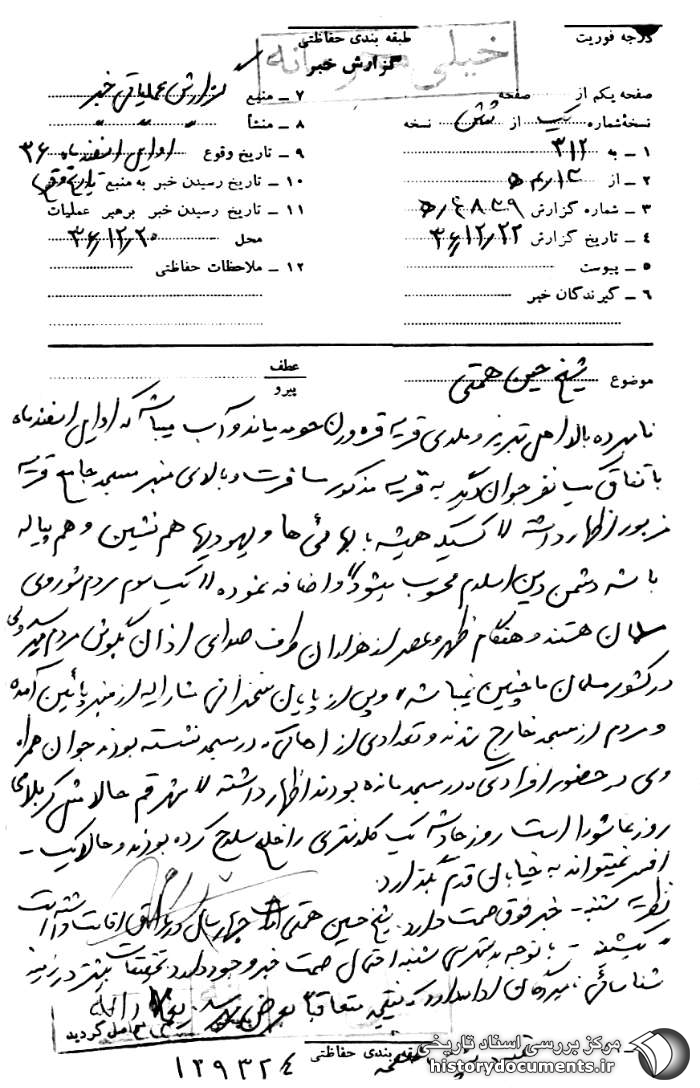 درجه فوریت
طبقه بندی حفاظتی
خیلی محرمانه
گزارش خبر
صفحه یکم از صفحه
نسخهٔ شماره یک از شش نسخه
۱ – به ۳۱۲
۲ – از ۵ﻫ۳
۳ – شماره گزارش ۶۸۳۹ / ۵ﻫ
۴ – تاریخ گزارش ۳۶/۱۲/۲۲
۵ – پیوست
۶ – گیرندگان خبر
۷ – منبع گزارش عملیاتی خبر
۸ – منشأ
۹ – تاریخ وقوع اوایل اسفندماه ۳۶
۱۰ – تاریخ رسیدن خبر به منبع تاریخ وقوع
۱۱ – تاریخ رسیدن خبر برهبر عملیات
محل ۳۶/۱۲/۲۰
۱۲ – ملاحظات حفاظتی
موضوع شیخ حسین همتی
عطف
پیرو
نامبرده بالا اهل تبریز و ملای قریه قره ورن حومه میاندوآب میباشد که اوایل اسفند ماه
باتفاق یکنفر جوان دیگر به قریه مذکور مسافرت و بالای منبر مسجد جامع قریه
مزبور اظهار داشته « کسیکه همیشه با بهائی ها و یهودیها هم نشین و هم پیاله
باشد دشمن دین اسلام محسوب میشود » و اضافه نموده « یک سوم مردم شوروی
مسلمان هستند و هنگام ظهر و عصر از هزاران طرف صدای اذان بگوش مردم میرسد ولی
در کشور مسلمان ما چنین نمیباشد » و پس از پایان سخنرانی مشارالیه از منبر پائین آمده
و مردم از مسجد خارج شدند و تعدادی از اهالی که در مسجد نشسته بودند جوان همراه
وی در حضور افرادیکه در مسجد مانده بودند اظهار داشته « شهر قم حالا مثل کربلای
روز عاشورا است روز حادثه یک کلانتری را خلع سلاح کرده بودند و حالا یک –
افسر نمیتواند به خیابان قدم بگذارد.
نظریه شنبه – خبر فوق صحت دارد. شیخ حسین همتی چهار سال در اقامت داشته است
یکشنبه – با توجه به دسترسی شنبه احتمال صحت خبر وجود دارد تحقیقات بیشتر در زمینه
شناسائی نامبردگان ادامه دارد که نتیجه متعاقباً بعرض میرسد.
حاصل گردید
طبقه بندی حفاظتی
۱۲۹۳۲۴
مرکز بررسی اسناد تاریخی
historydocuments.ir